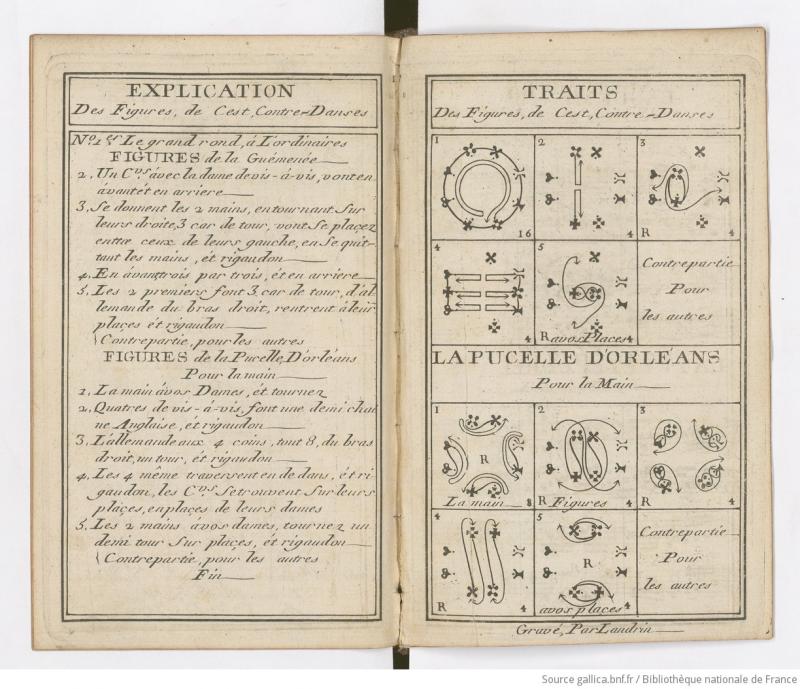 EXPLICATION
Des Figures, de Cest, Contre-Danses
No. 1er Le grand rond, á L'ordinaires
FIGURES de la Guémenée
2. Un Cvs. ávec la dame de vis-á-vis, vont en
ávant ét en arriere
3, Se donnent les 2 mains, en tournant Sur
leurs droite, 3 car de tour, vont Se placez
entre ceux de leurs gauche, en Se quit-
tant les mains, ét rigaudon
4. En ávant trois par trois, ét en arriere
5, Les 2 premiers font 3, car de tour, d'al
lemande du bras droit, rentrent á leur
plaçes ét rigaudon
Contrepartie, pour les autres
FIGURES de la Pucelle, D'orléans
Pour la main
1, La main ávos Dames, ét tournez
2, Quatres de vis-á-vis, font une demi chai
ne Anglaise, et rigaudon
3, L'allemande aux 4 coins, tout 8, du bras
droit, un tour, ét rigaudon
4, Les 4 même traversent en de dans, ét ri
gaudon, les Cvs. Se trouvent Sur leurs
plaçes, en plaçes de leurs dames
5, Les 2 mains ávos dames, tournez un
demi tour Sur plaçes, ét rigaudon
Contrepartie, pour les autres
Fin
TRAITS
Des Figures, de Cest, Contre-Danses
1 2 3
16 4 R 4
4 5
Contrepartie
Pour
les autres
4 R avos Places 4
LA PUCELLE D'ORLÉANS
Pour la Main
1 2 3
R
La main 8 R Figures 4 R 4
4 5
Contrepartie
R
Pour
les autres
R 4 avos places 4
Gravé, Par Landrin
Source gallica.bnf.fr / Bibliothèque nationale de France